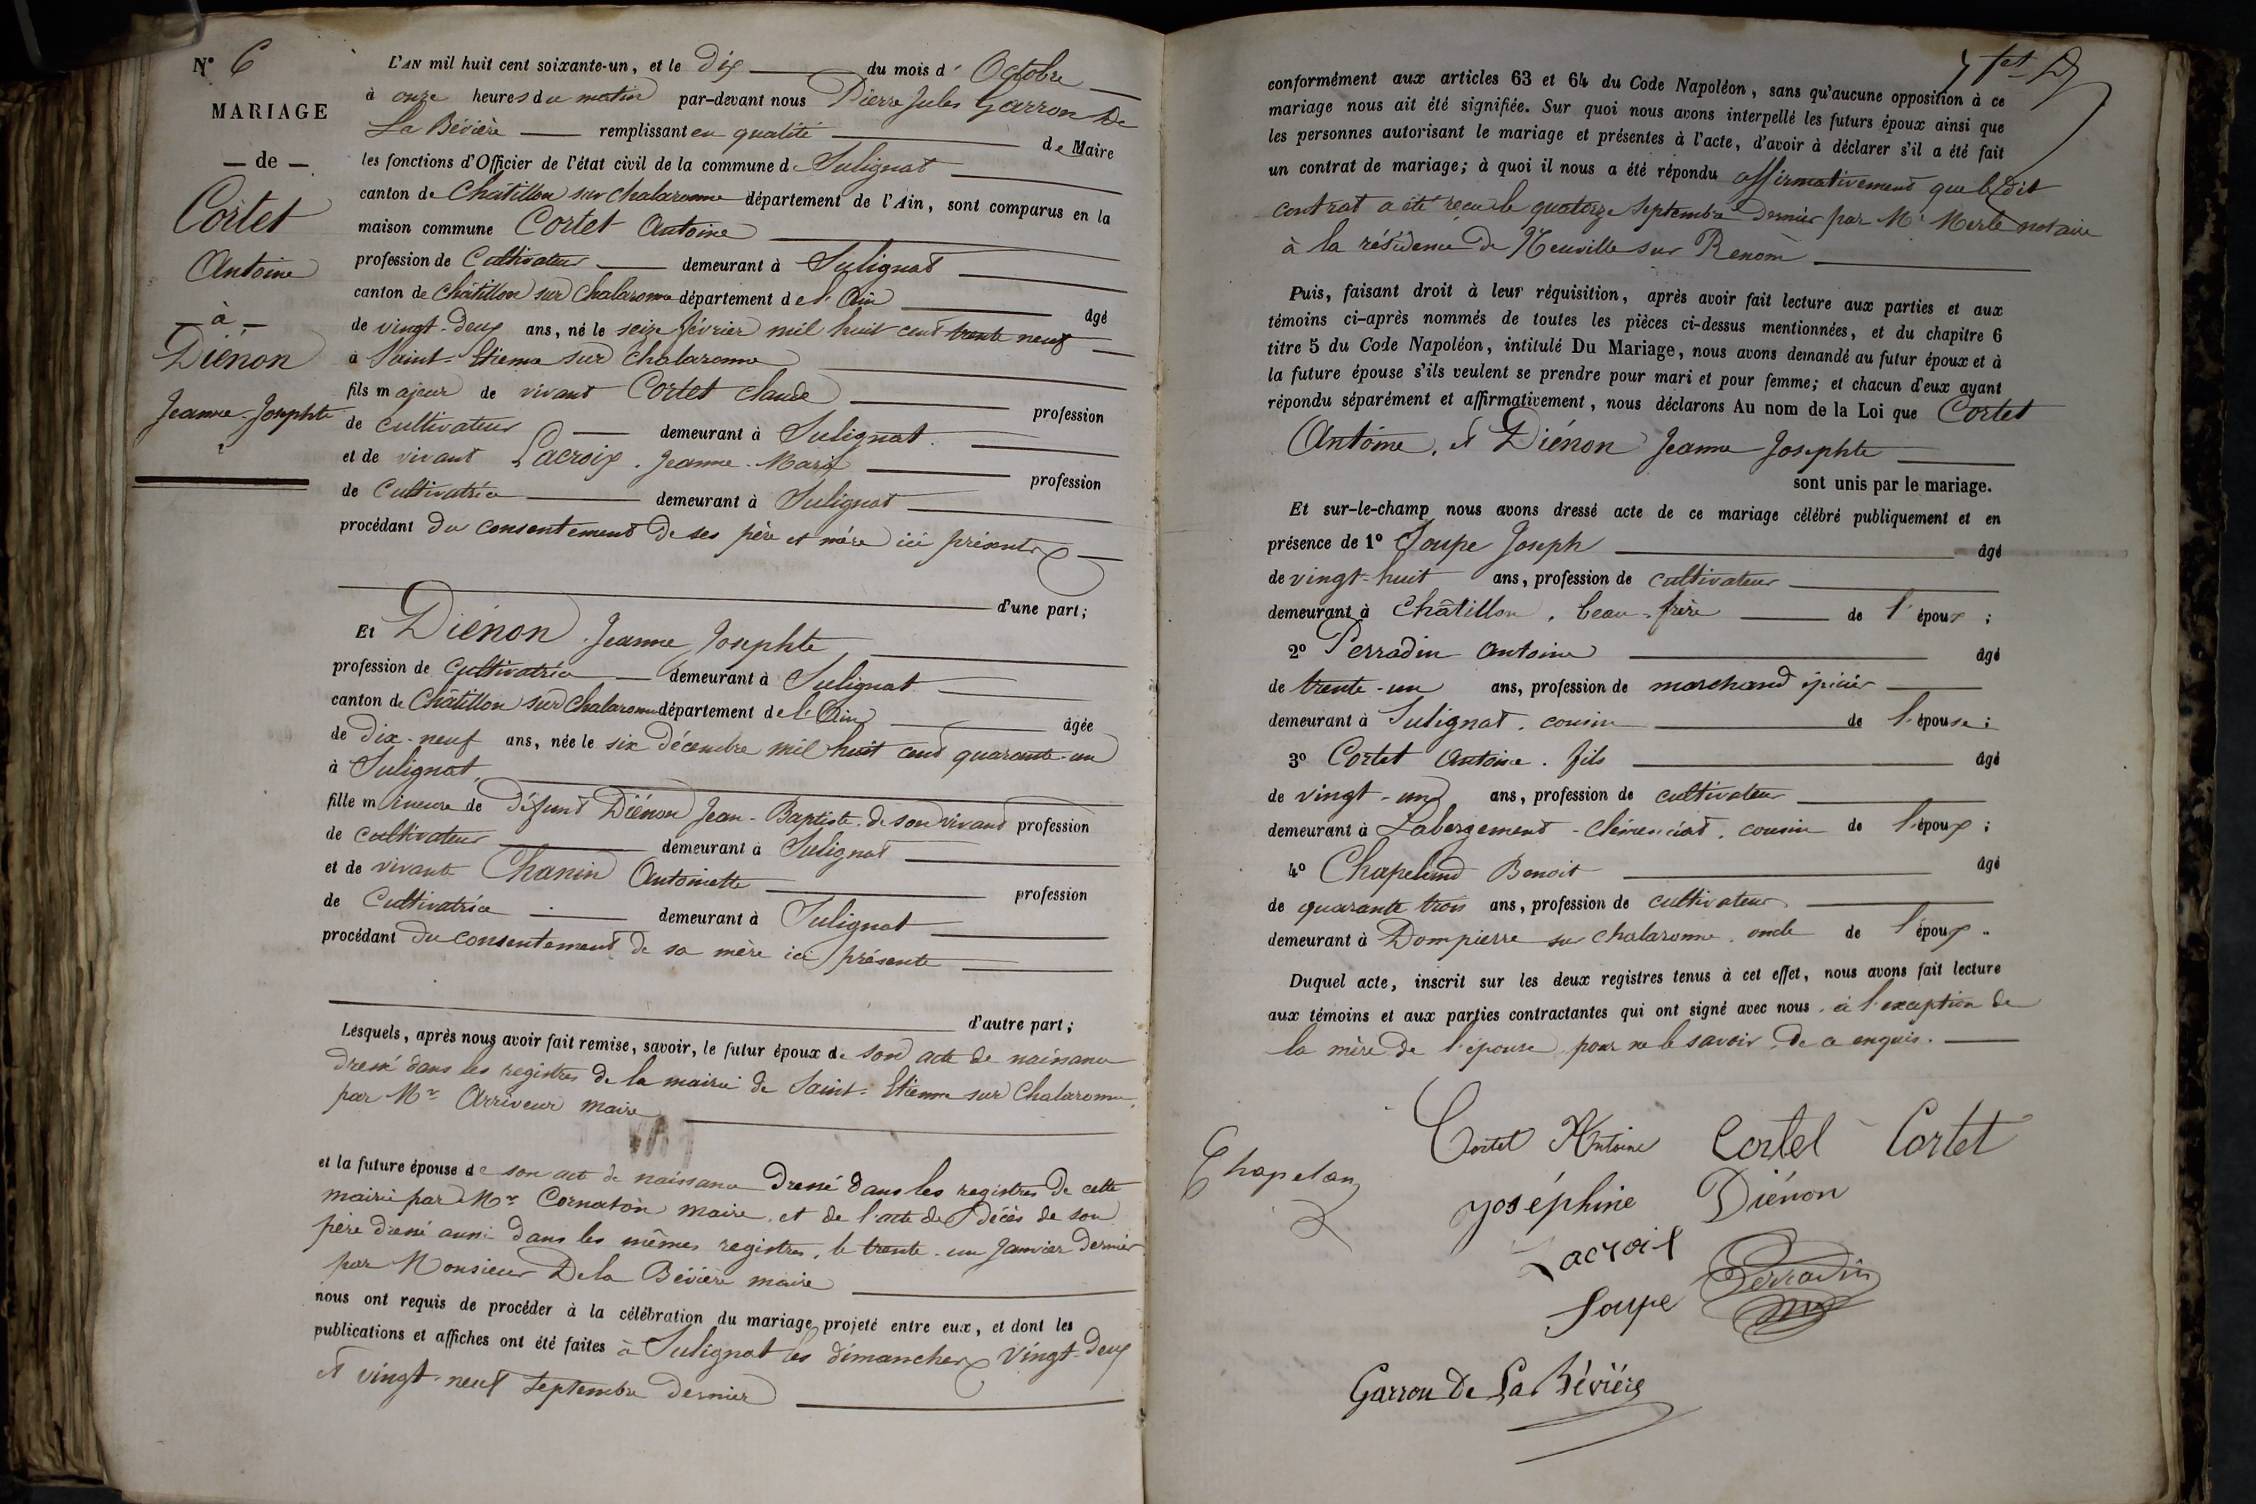 N° 6
MARIAGE
— de —
Cortet
Antoine
— à —
Diénon
Jeanne-Josephte
L'AN mil huit cent soixante-un, et le dix du mois d' Octobre
à onze heures du matin par-devant nous Pierre Jules Garron De
La Bévière remplissant en qualité de Maire
les fonctions d'Officier de l'état civil de la commune de Sulignat
canton de Châtillon sur Chalaronne département de l'Ain, sont comparus en la
maison commune Cortet Antoine
profession de Cultivateur demeurant à Sulignat
canton de Châtillon sur Chalaronne département de l'Ain âgé
de vingt-deux ans, né le seize février mil huit cent trente neuf
à Saint-Etienne sur Chalaronne
fils majeur de vivant Cortet Claude profession
de cultivateur demeurant à Sulignat
et de vivant Lacroix Jeanne-Marie profession
de Cultivatrice demeurant à Sulignat
procédant du consentement de ses père et mère ici présents
d'une part;
Et Diénon Jeanne Josephte
profession de Cultivatrice demeurant à Sulignat
canton de Châtillon sur Chalaronne département de l'Ain âgée
de dix-neuf ans, née le six décembre mil huit cent quarante-un
à Sulignat
fille mineure de défunt Diénon Jean-Baptiste de son vivant profession
de cultivateur demeurant à Sulignat
et de vivante Chanin Antoinette profession
de Cultivatrice demeurant à Sulignat
procédant du consentement de sa mère ici présente
d'autre part;
Lesquels, après nous avoir fait remise, savoir, le futur époux de son acte de naissance
dressé dans les registres de la mairie de Saint-Etienne sur Chalaronne,
par Mr Arriveur maire
et la future épouse de son acte de naissance dressé dans les registres de cette
mairie par Mr Cornaton maire, et de l'acte de décès de son
père dressé aussi dans les mêmes registres, le trente-un Janvier dernier
par Monsieur De la Bévière maire
nous ont requis de procéder à la célébration du mariage projeté entre eux, et dont les
publications et affiches ont été faites à Sulignat les dimanches vingt-deux
et vingt-neuf septembre dernier
conformément aux articles 63 et 64 du Code Napoléon, sans qu'aucune opposition à ce
mariage nous ait été signifiée. Sur quoi nous avons interpellé les futurs époux ainsi que
les personnes autorisant le mariage et présentes à l'acte, d'avoir à déclarer s'il a été fait
un contrat de mariage; à quoi il nous a été répondu affirmativement que ledit
contrat a été reçu le quatorze septembre dernier par Me Merle notaire
à la résidence de Neuville sur Renom
Puis, faisant droit à leur réquisition, après avoir fait lecture aux parties et aux
témoins ci-après nommés de toutes les pièces ci-dessus mentionnées, et du chapitre 6
titre 5 du Code Napoléon, intitulé Du Mariage, nous avons demandé au futur époux et à
la future épouse s'ils veulent se prendre pour mari et pour femme; et chacun d'eux ayant
répondu séparément et affirmativement, nous déclarons Au nom de la Loi que Cortet
Antoine, et Diénon Jeanne Josephte
sont unis par le mariage.
Et sur-le-champ nous avons dressé acte de ce mariage célébré publiquement et en
présence de 1° Soupe Joseph âgé
de vingt-huit ans, profession de cultivateur
demeurant à Châtillon, beau-frère de l'époux;
2° Perradin Antoine âgé
de trente-un ans, profession de marchand épicier
demeurant à Sulignat, cousin de l'épouse;
3° Cortet Antoine, fils âgé
de vingt-un ans, profession de cultivateur
demeurant à Labergement-Clémenciat, cousin de l'époux;
4° Chapeland Benoit âgé
de quarante trois ans, profession de cultivateur
demeurant à Dompierre sur Chalaronne, oncle de l'époux.
Duquel acte, inscrit sur les deux registres tenus à cet effet, nous avons fait lecture
aux témoins et aux parties contractantes qui ont signé avec nous, à l'exception de
la mère de l'épouse pour ne le savoir de ce enquis.
Cortet Antoine Cortet Cortet
Chapelan
Joséphine Diénon
Lacroix
Soupe Perradin
Garron De La Bévière